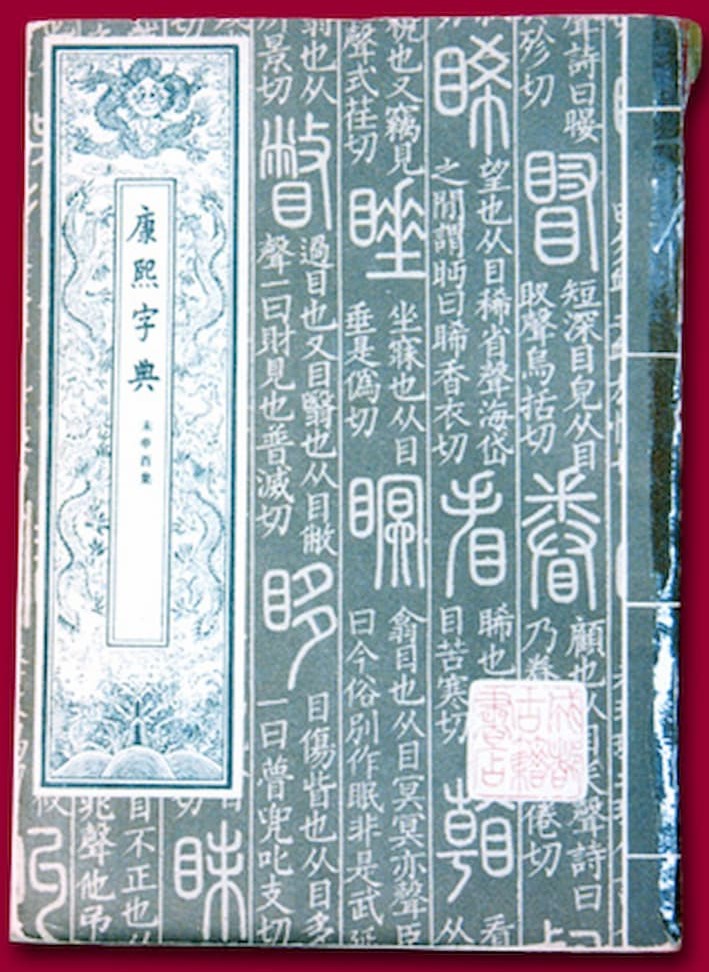 康熙字典
未申酉集
聲詩曰
殄切
短深目皃从目
聲烏括切
眷
顧也从目
聲詩曰
乃眷
倦切
睎
望也从目稀省聲海岱
之閒謂眄曰睎香衣切
看
睎也
目苦寒切
看
从
也又竊見
聲式荏切
睡
坐寐也从目
垂是偽切
瞑
翕目也从目冥冥亦聲臣
曰今俗別作眠非是武延
也从
景切
瞥
過目也又目翳也从目敝
聲一曰財見也普滅切
眵
目傷眥也从目多
一曰瞢兜叱支切
眛
目不正也从
聲他弔
成都
古籍
書店